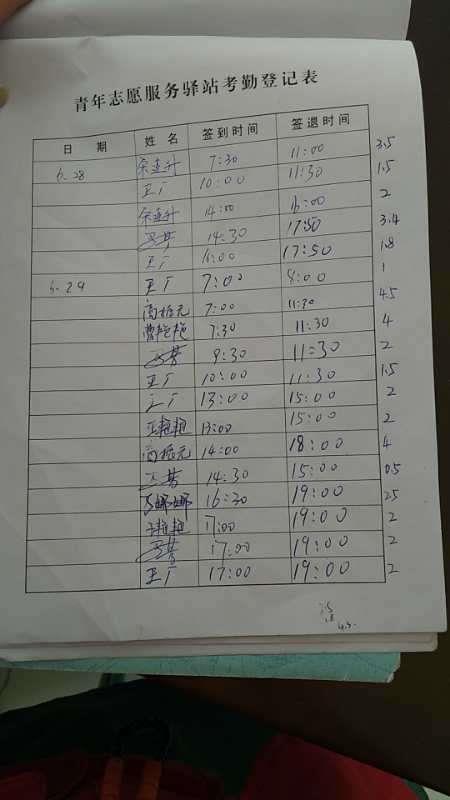 青年志愿服务驿站考勤登记表
日 期 姓 名 签到时间 签退时间
6.28 7:30 11:00 3.5
王丁 10:00 11:30 1.5
14:00 16:00 2
14:30 17:50 3.4
王丁 16:00 17:50 1.8
6.29 王丁 7:00 8:00 1
7:00 11:30 4.5
7:30 11:30 4
9:30 11:30 2
王丁 10:00 11:30 1.5
王丁 13:00 15:00 2
13:00 15:00 2
14:00 18:00 4
14:30 15:00 0.5
16:30 19:00 2.5
17:00 19:00 2
17:00 19:00 2
王丁 17:00 19:00 2